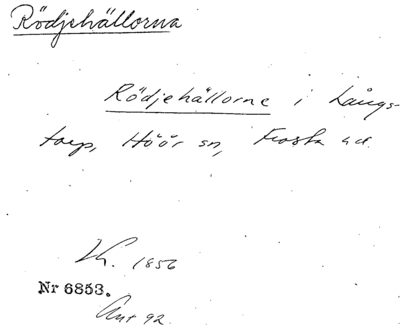 Rödjehällorna
Rödjehällorne i Långs-
torp, Höör sn, Frosta hd.
Kr. 1856
Nr 6853.
Ant 92.